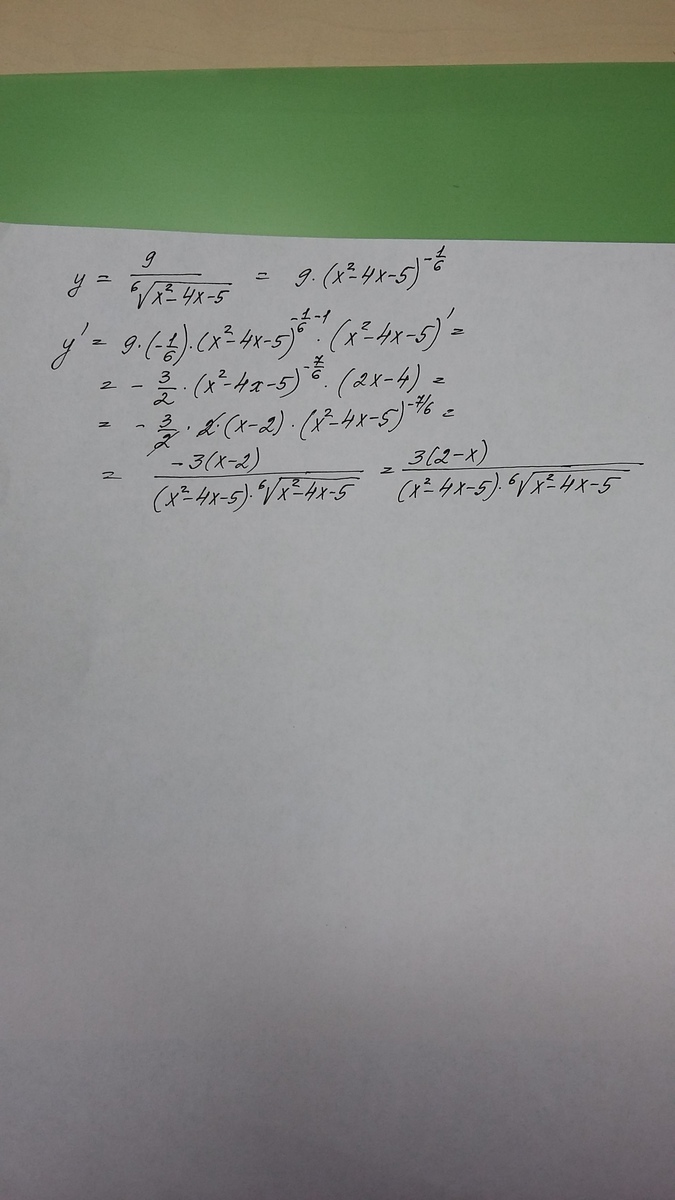 y = 9 / ⁶√(x²-4x-5) = 9·(x²-4x-5)^(-1/6)
y' = 9·(-1/6)·(x²-4x-5)^(-1/6-1)·(x²-4x-5)' =
= -3/2·(x²-4x-5)^(-7/6)·(2x-4) =
= -3/2·2·(x-2)·(x²-4x-5)^(-7/6) =
= -3(x-2) / ((x²-4x-5)·⁶√(x²-4x-5)) = 3(2-x) / ((x²-4x-5)·⁶√(x²-4x-5))